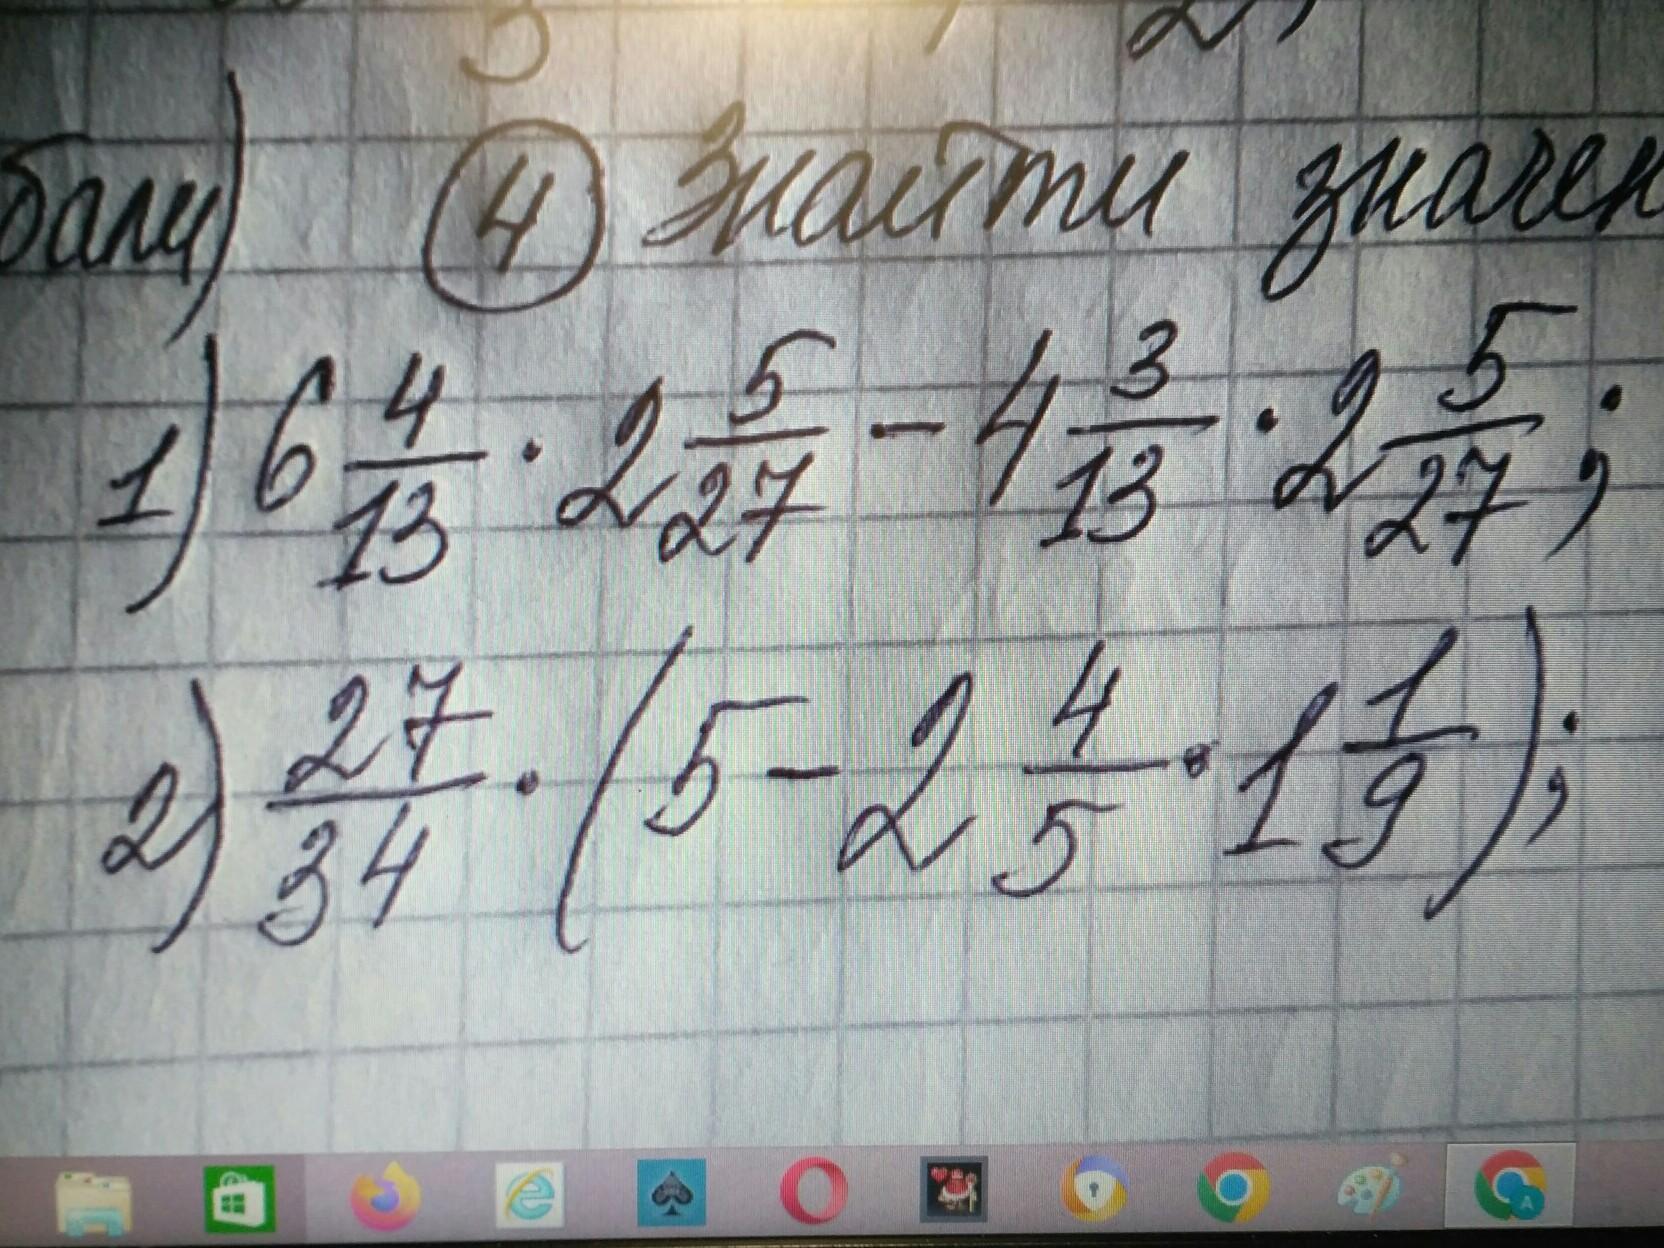 бали) ④ Знайти значен
1) 6 4/13 · 2 5/27 - 4 3/13 · 2 5/27 ;
2) 27/34 · (5 - 2 4/5 · 1 1/9) ;